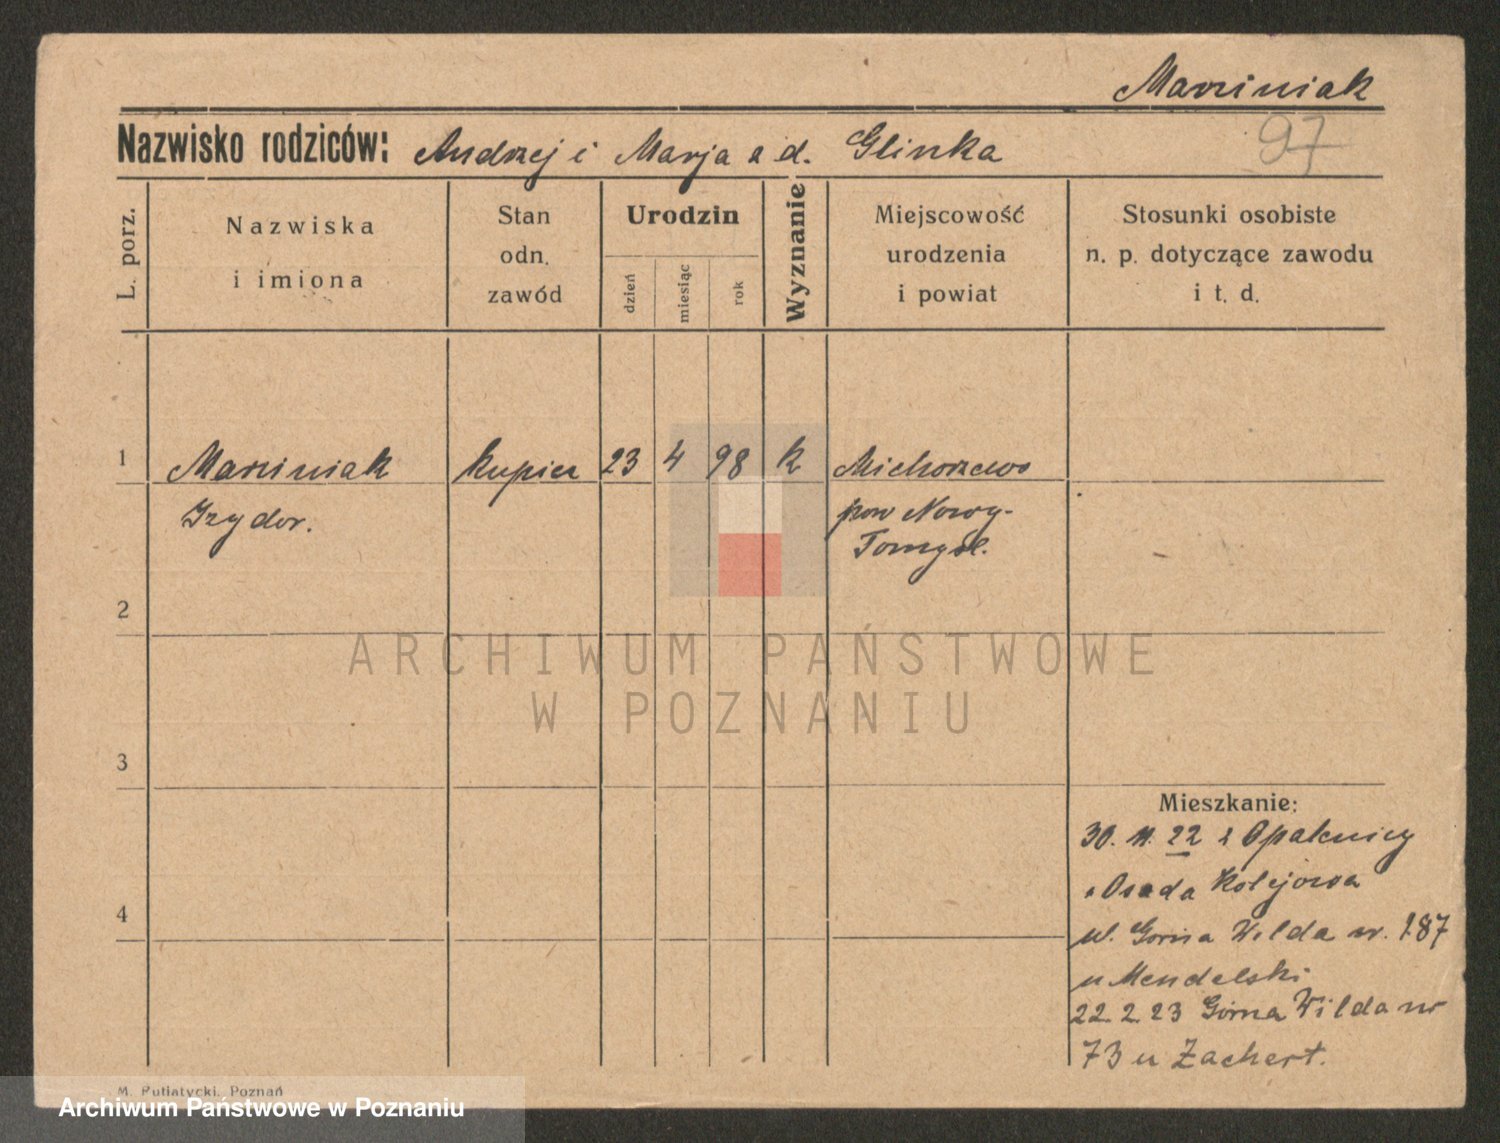 Marciniak
97
Nazwisko rodziców: Andrzej i Marja z d. Glinka
L. porz.
Nazwiska
i imiona
Stan
odn.
zawód
Urodzin
dzień
miesiąc
rok
Wyznanie
Miejscowość
urodzenia
i powiat
Stosunki osobiste
n. p. dotyczące zawodu
i t. d.
1 Marciniak kupiec 23 4 98 k Michorzewo
Izydor. pow Nowy-
Tomyśl.
2
ARCHIWUM PAŃSTWOWE
W POZNANIU
3
Mieszkanie:
30. 11. 22 z Opalenicy
Osada Kolejowa
4
ul. Górna Wilda nr. 187
u Mendelski
22 2 23 Górna Wilda nr
73 u Zachert.
M. Putiatycki, Poznań
Archiwum Państwowe w Poznaniu